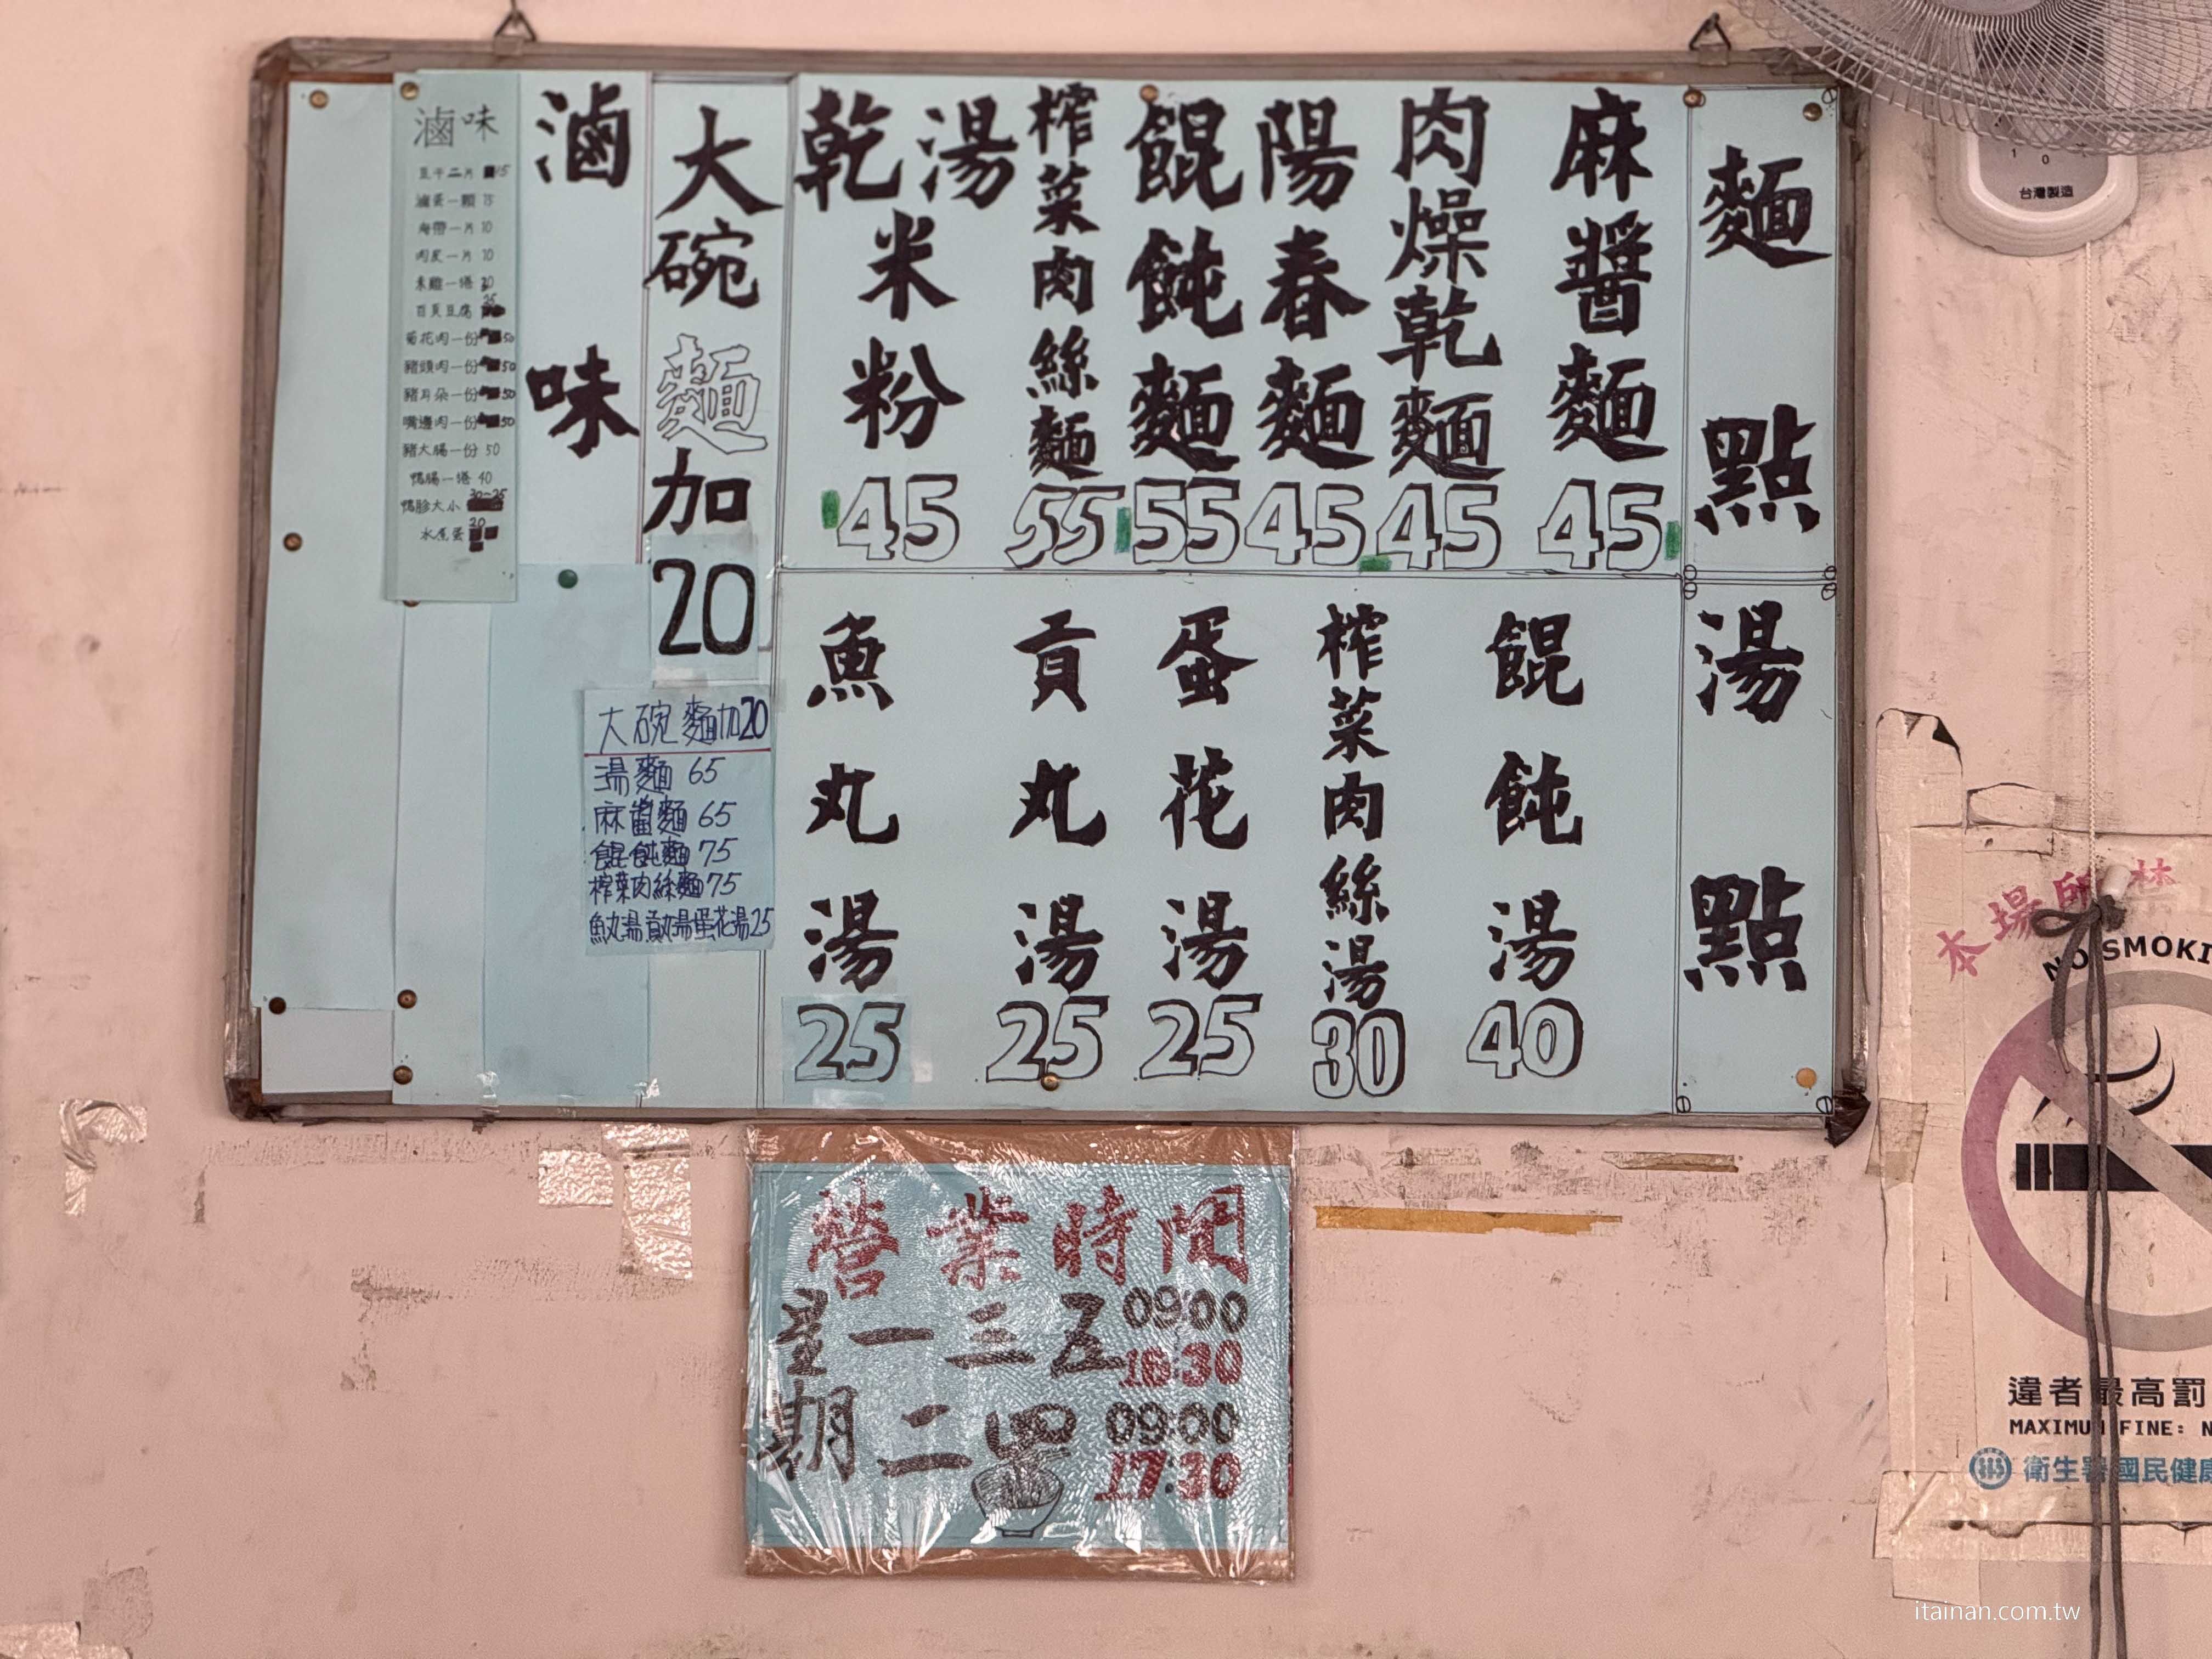 麵點
麻醬麵 45
肉燥乾麵 45
陽春麵 45
餛飩麵 55
榨菜肉絲麵 55
乾湯米粉 45
大碗麵加20
湯點
餛飩湯 40
榨菜肉絲湯 30
蛋花湯 25
貢丸湯 25
魚丸湯 25
滷味
滷味
豆干二片 15
滷蛋一顆 15
海帶一片 10
肉皮一片 10
素雞一捲
百頁豆腐 35
菊花肉一份 50
豬頭肉一份 50
豬耳朵一份 50
嘴邊肉一份 50
豬大腸一份 50
鴨腸一捲 40
鴨胗大小 30~35
水煮蛋
大碗麵加20
湯麵 65
麻醬麵 65
餛飩麵 75
榨菜肉絲麵 75
魚丸湯貢丸湯蛋花湯25
營業時間
星期
一三五 09:00
16:30
二四 09:00
17:30
1 0
台灣製造
本場所禁
NO SMOKI
違者最高罰
MAXIMUM FINE: N
衛生署國民健康
itainan.com.tw